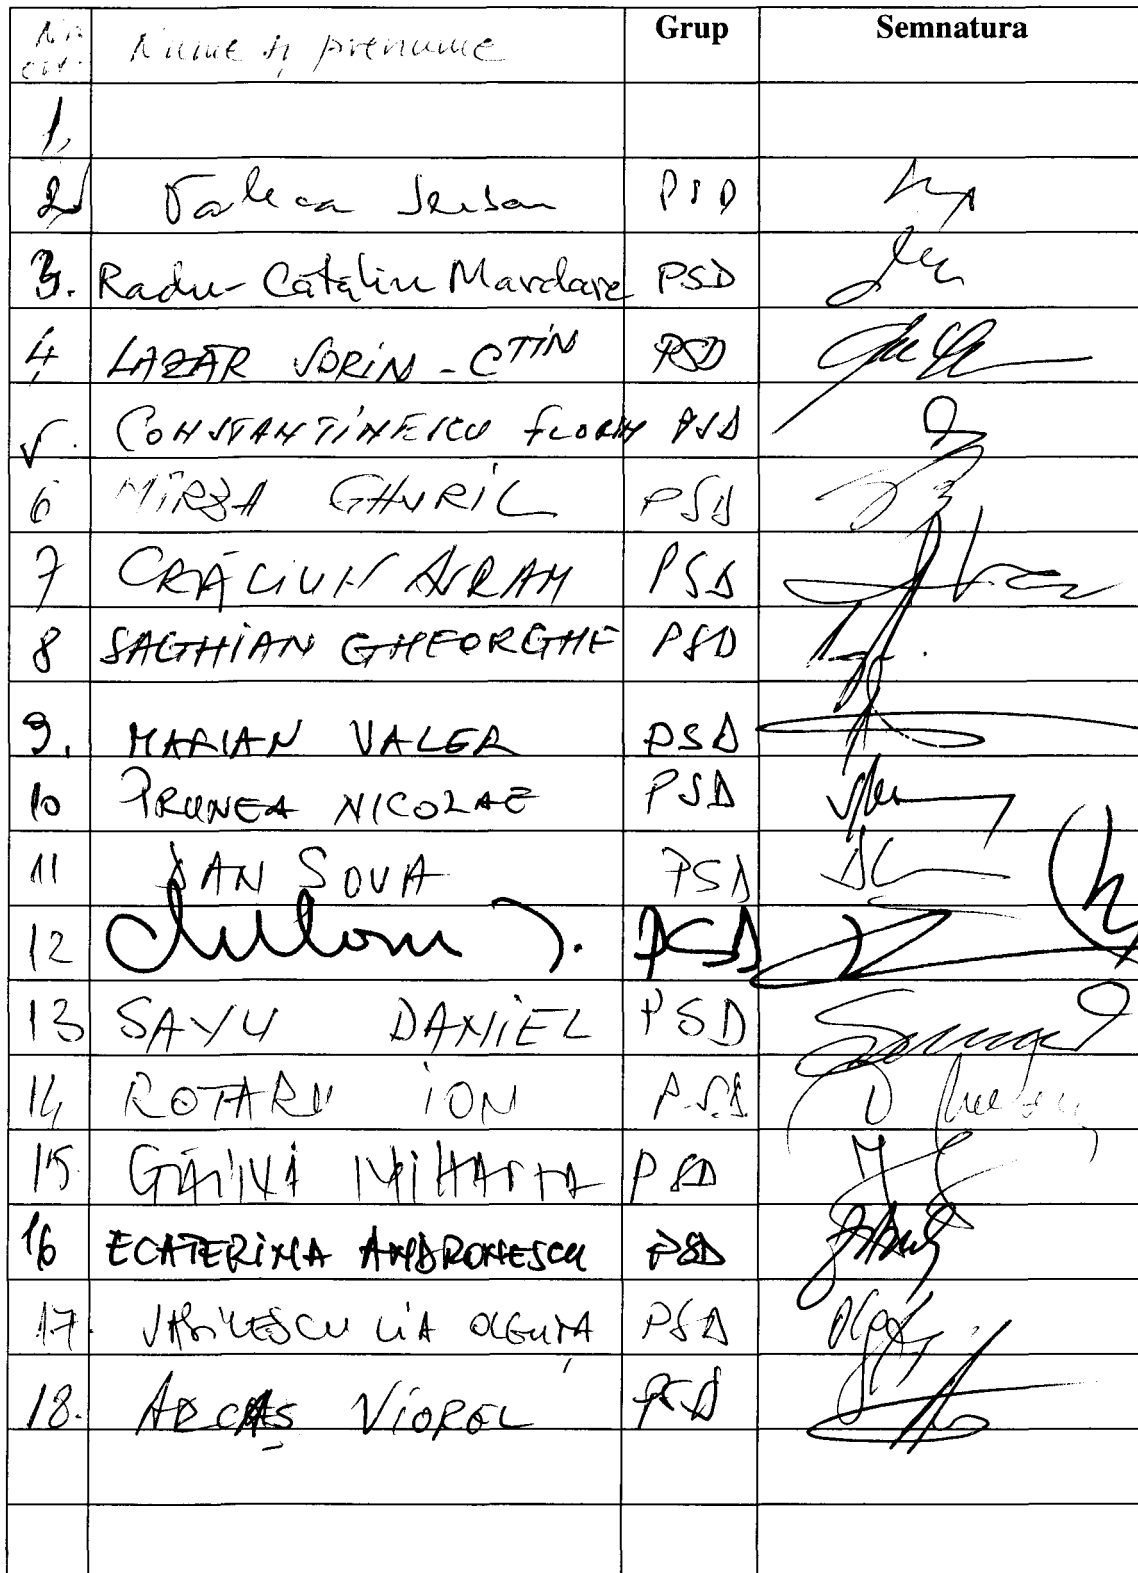 Nr. crt. Nume și prenume Grup Semnatura
1,
2, Valeca Serban PSD
3. Radu-Cătălin Mardare PSD
4, LAZĂR SORIN - CTIN PSD
5. CONSTANTINESCU FLORIN PSD
6 MÎRZA GAVRIL PSD
7 CRĂCIUN AVRAM PSD
8 SAGHIAN GHEORGHE PSD
9. MARIAN VALER PSD
10 PRUNEA NICOLAE PSD
11 DAN SOVA PSD
12 PSD
13 SAVU DANIEL PSD
14 ROTARU ION PSD
15 PSD
16 ECATERINA ANDRONESCU PSD
17. VASILESCU LIA OLGUȚA PSD
18. ARCAȘ VIOREL PSD